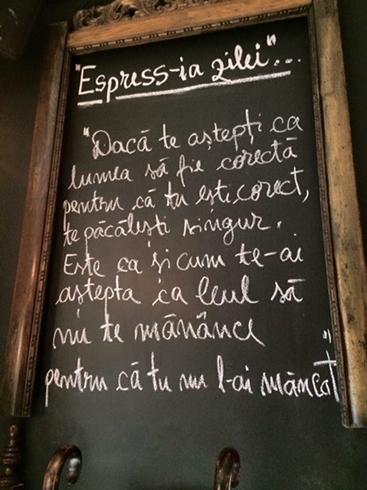 "Espress-ia zilei"...
"Dacă te aștepți ca
lumea să fie corectă
pentru că tu ești corect,
te păcălești singur.
Este ca și cum te-ai
aștepta ca leul să
nu te mănânce
pentru că tu nu l-ai mâncat"